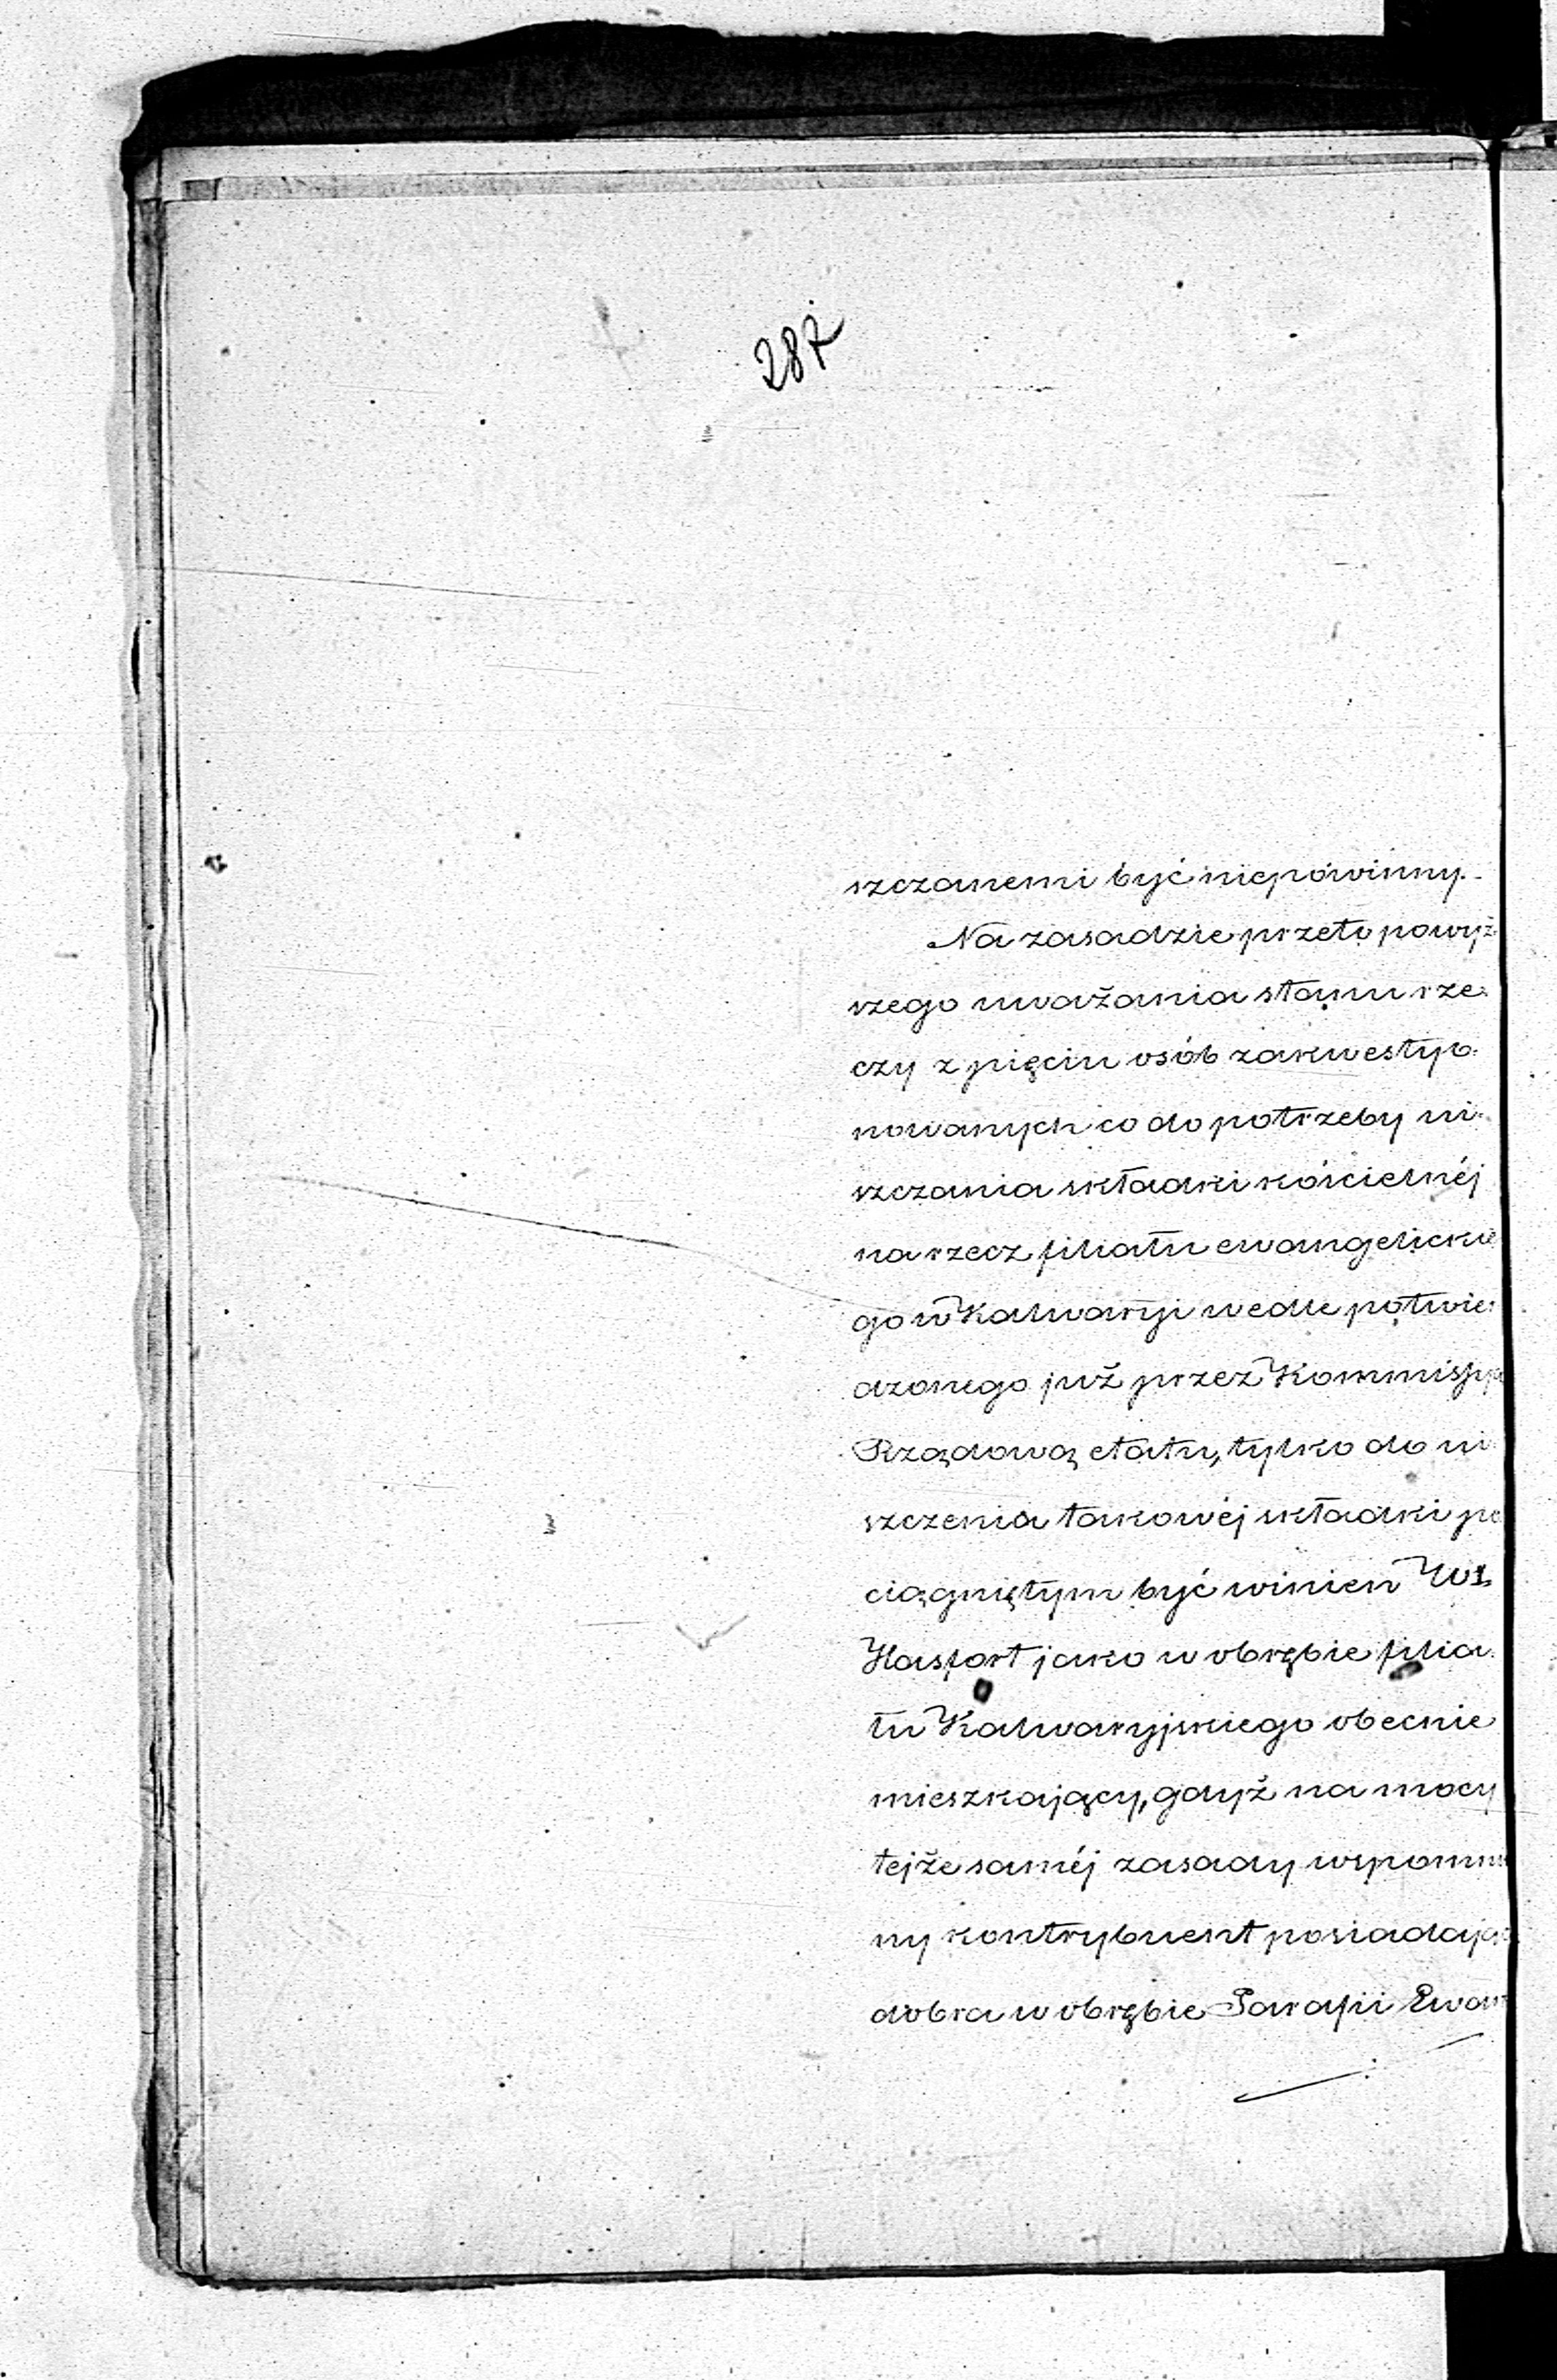 287
szczanemi być niepowinny.
Na zasadzie przeto powyż
szego uważania stanu rze
czy z pięciu osób zakwestyo
nowanych co do potrzeby ui
szczania składki kościelnéj
na rzecz filiału ewangelickie
go w Kalwaryi wedle potwier
dzonego już przez Kommissyą
Rządową etatu, tylko do ui
szczenia takowéj składki po
ciągniętym być winien Wł.
Hasfort jako w obrębie filia
łu Kalwaryjskiego obecnie
mieszkający, gdyż na mocy
tejże saméj zasady wspomnio
ny kontrybuent posiadając
dobra w obrębie Parafii Ewan